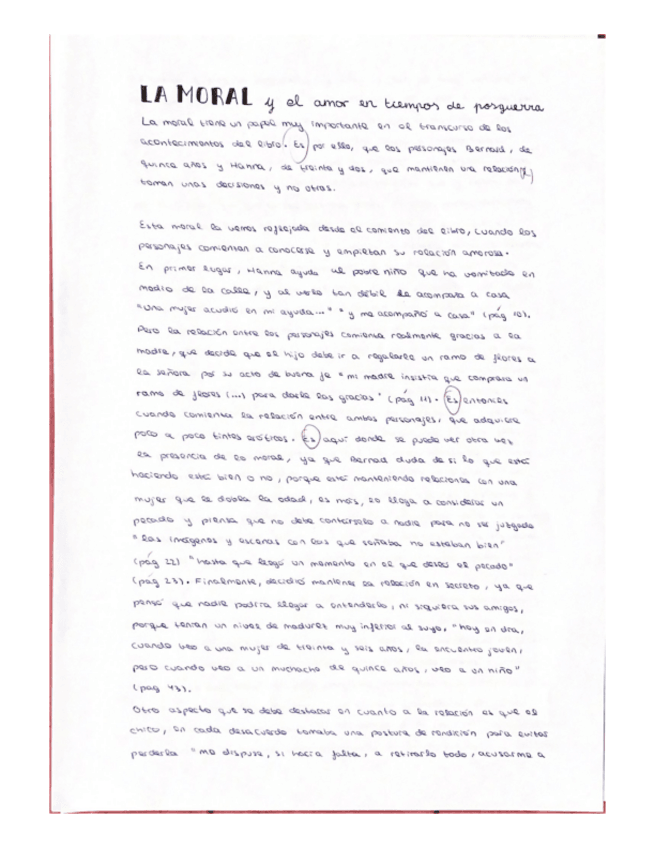 LA MORAL y el amor en tiempos de posguerra
La moral tiene un papel muy importante en el transcurso de los
acontecimientos del libro. Es por ello, que los personajes Bernard, de
quince años y Hanna, de treinta y dos, que mantienen una relación,
toman unas decisiones y no otras.
Esta moral la vemos reflejada desde el comienzo del libro, cuando los
personajes comienzan a conocerse y empiezan su relación amorosa.
En primer lugar, Hanna ayuda al pobre niño que ha vomitado en
medio de la calle, y al verlo tan débil le acompaña a casa
"Una mujer acudió en mi ayuda..." "y me acompañó a casa" (pág 10).
Pero la relación entre los personajes comienza realmente gracias a la
madre, que decide que su hijo debe ir a regalarle un ramo de flores a
la señora por su acto de buena fe "mi madre insistía que comprara un
ramo de flores (...) para darle las gracias" (pág 11). Es entonces
cuando comienza la relación entre ambos personajes, que adquiere
poco a poco tintes eróticos. Es aquí donde se puede ver otra vez
la presencia de la moral, ya que Bernad duda de si lo que está
haciendo está bien o no, porque está manteniendo relaciones con una
mujer que le dobla la edad, es más, lo llega a considerar un
pecado y piensa que no debe contárselo a nadie para no ser juzgado
"las imágenes y escenas con las que soñaba no estaban bien"
(pág 22) "hasta que llegó un momento en el que deseé el pecado"
(pág 23). Finalmente, decidió mantener la relación en secreto, ya que
pensó que nadie podría llegar a entenderlo, ni siquiera sus amigos,
porque tenían un nivel de madurez muy inferior al suyo. "hoy en día,
cuando veo a una mujer de treinta y seis años, la encuentro joven,
pero cuando veo a un muchacho de quince años, veo a un niño"
(pág 43).
Otro aspecto que se debe destacar en cuanto a la relación es que el
chico, en cada desacuerdo tomaba una postura de rendición para evitar
perderla "me dispuse, si hacía falta, a retirarlo todo, acusarme a